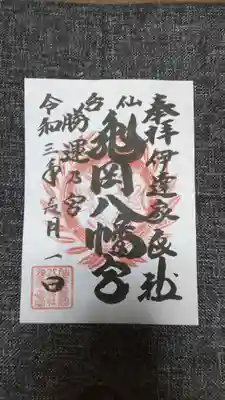 奉拝 伊達家氏社
仙台
亀岡八幡宮
勝運乃宮
令和三年 月一日